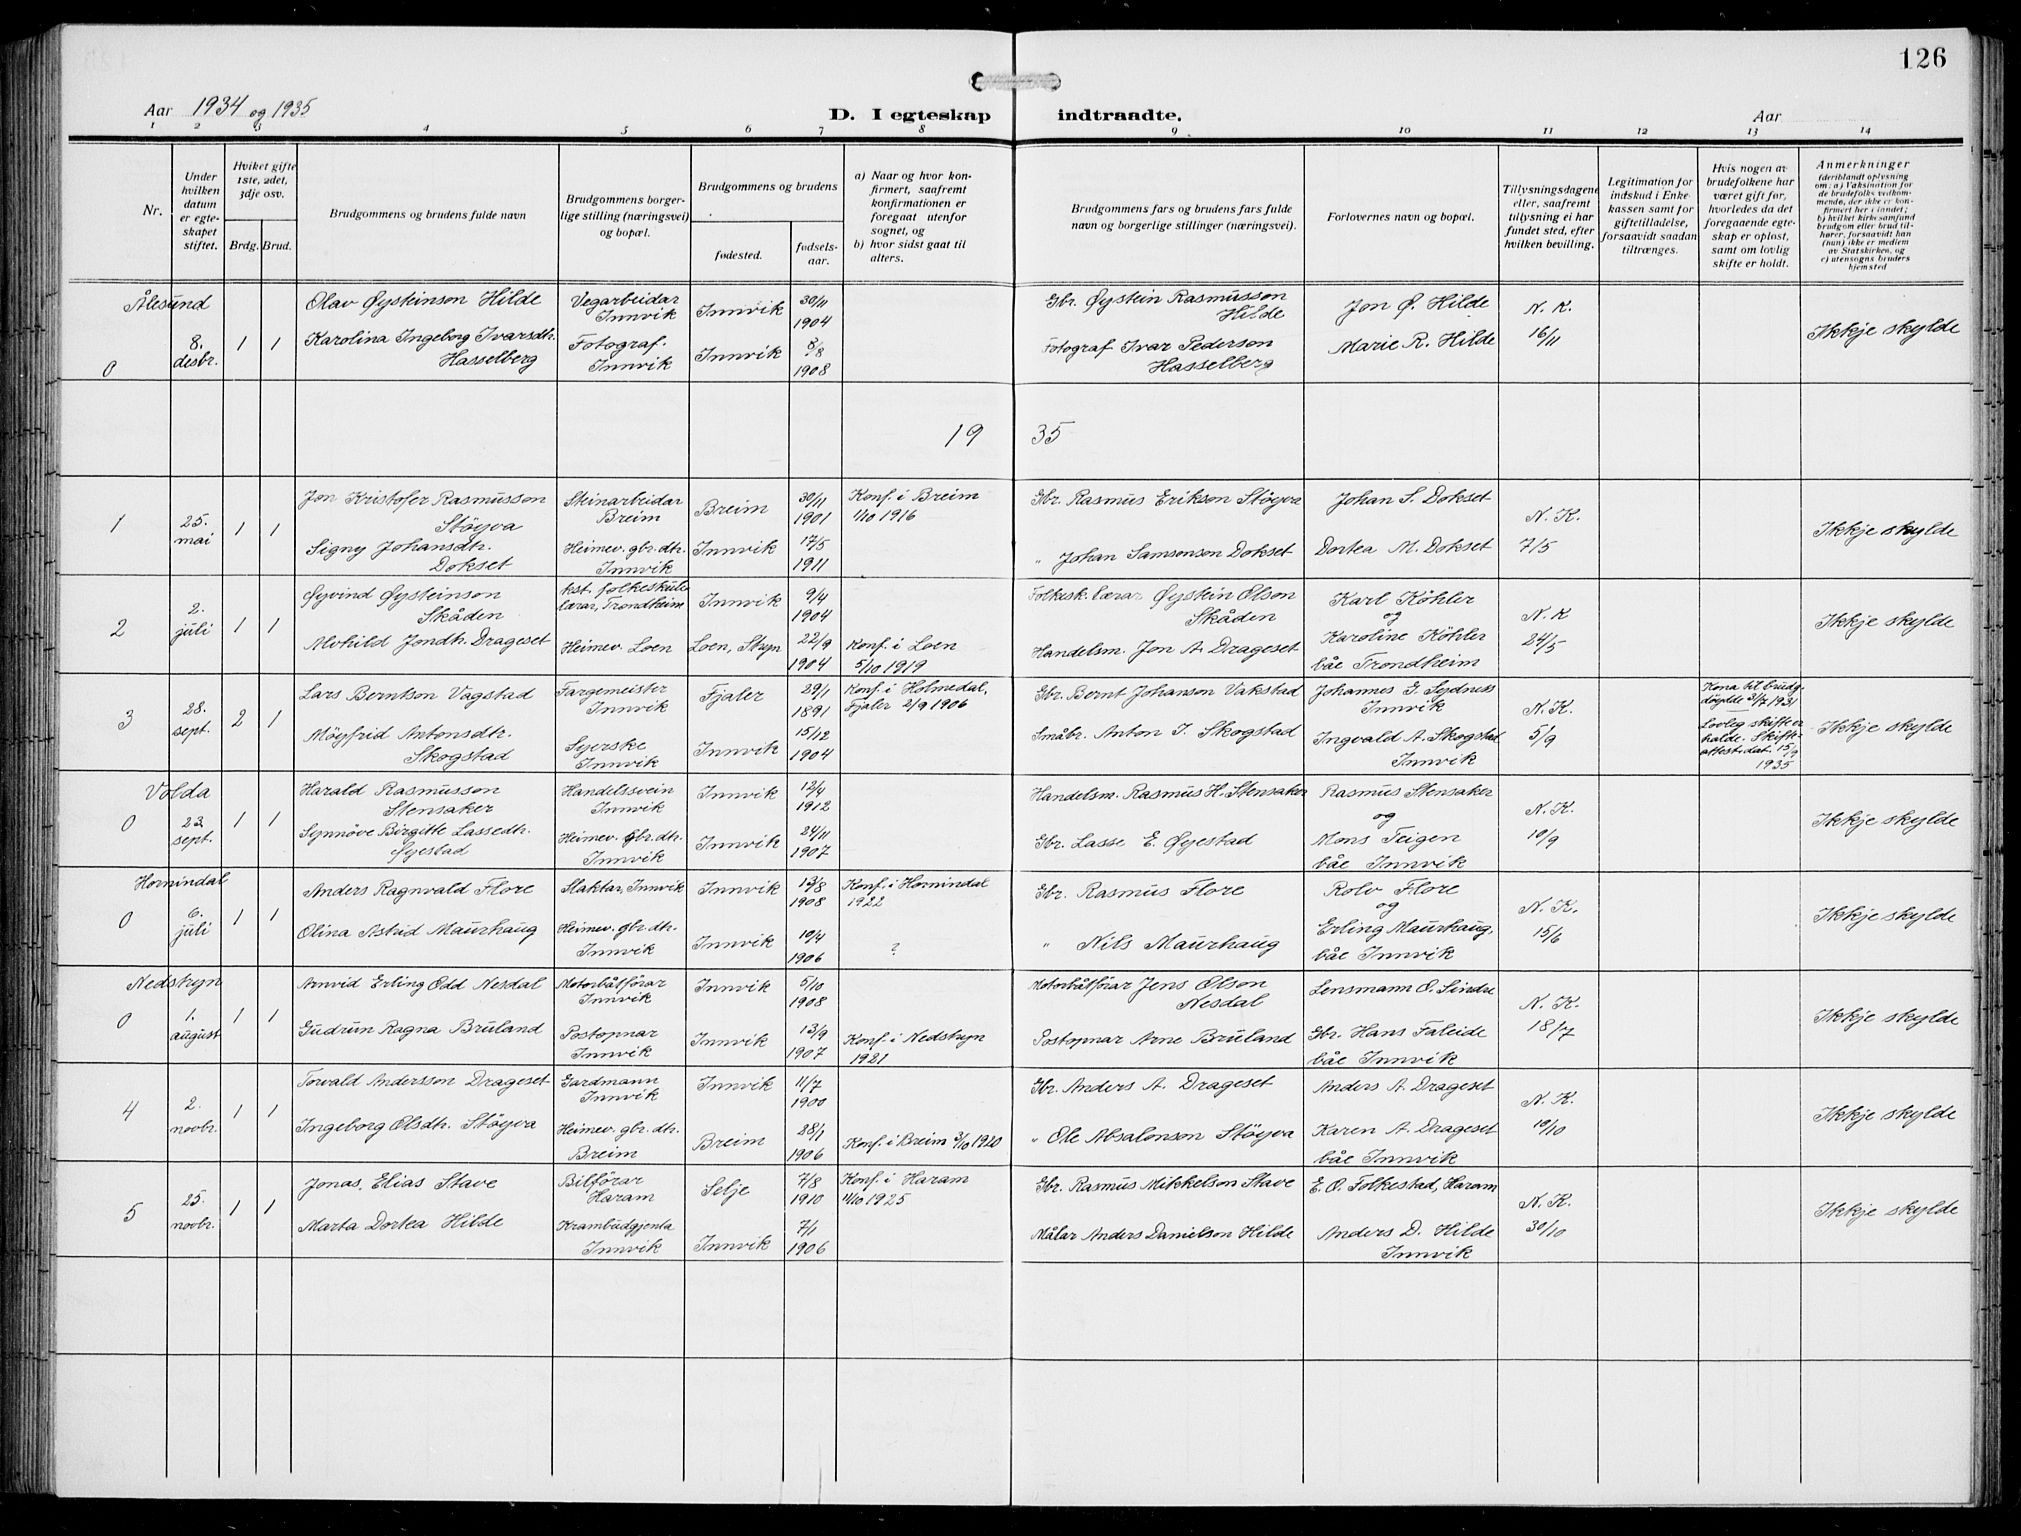 126
Aar 1934 og 1935
D. I egteskap indtraadte.
Aar
1 2 3 4 5 6 7 8 9 10 11 12 13 14
Nr.
Under hvilken datum er egteskapet stiftet.
Hvilket gifte 1ste, 2det, 3dje osv.
Brdg. Brud.
Brudgommens og brudens fulde navn
Brudgommens borgerlige stilling (næringsvei) og bopæl.
Brudgommens og brudens
fødested.
fødselsaar.
a) Naar og hvor konfirmert, saafremt konfirmationen er foregaat utenfor sognet, og
b) hvor sidst gaat til alters.
Brudgommens fars og brudens fars fulde navn og borgerlige stillinger (næringsvei).
Forlovernes navn og bopæl.
Tillysningsdagene eller, saafremt tillysning ei har fundet sted, efter hvilken bevilling.
Legitimation for indskud i Enkekassen samt for giftetilladelse, forsaavidt saadan tiltrænges.
Hvis nogen av brudefolkene har været gift før, hvorledes da det foregaaende egteskap er opløst, samt om lovlig skifte er holdt.
Anmerkninger
fderiblandt oplysning om: a) Vaksination for de brudefolks vedkommende, der ikke er konfirmert her i landet; b) hvilket kirkesamfund brudgom eller brud tilhører, forsaavidt han (hun) ikke er medlem av Statskirken, og c) utensogns bruders hjemsted
Ålesund
0 8. desbr. 1 1
Olav Øysteinson Hilde Vegarbeidar Innvik Innvik 30/11 1904 Gbr. Øystein Rasmusson Hilde Jon Ø. Hilde N. K. 16/11 Ikkje skylde
Karolina Ingeborg Ivarsdh. Hasselberg Fotograf. Innvik Innvik 8/8 1908 Fotograf Ivar Pederson Hasselberg Marie R. Hilde
19 35
1 25. mai 1 1
Jon Kristofer Rasmusson Støyva Steinarbeidar Breim Breim 30/11 1901 Konf. i Breim 1/10 1916 Gbr. Rasmus Erikson Støyva Johan S. Dokset N. K. 7/5 Ikkje skylde
Signy Johansdh. Dokset Heimev. gbr. dh. Innvik Innvik 17/5 1911 " Johan Samsonson Dokset Dortea M. Dokset
2 2. juli 1 1
Øyvind Øysteinson Skåden kst. folkeskulelærar, Trondheim Innvik 9/4 1904 Folkesk. lærar Øystein Olson Skåden Karl Köhler og N. K 24/5 Ikkje skylde
Alvhild Jondh. Drageset Heimev. Loen Loen, Stryn 22/9 1904 Konf. i Loen 5/10 1919 Handelsm. Jon A. Drageset Karoline Köhler båe Trondheim
3 28. sept. 2 1
Lars Berntson Vagstad Fargemeister Innvik Fjaler 29/1 1891 Konf. i Holmedal, Fjaler 2/9 1906 Gbr. Bernt Johanson Vakstad Johannes G. Sydness Innvik N. K. 5/9 Kona til brudg. døydde 3/7 1931 Lovleg skifte er halde. Skifteattest dat. 15/9 1935 Ikkje skylde
Möyfrid Antonsdh. Skogstad Syerske Innvik Innvik 15/12 1904 Småbr. Anton I. Skogstad Ingvald A. Skogstad Innvik
Volda
0 23. sept. 1 1
Harald Rasmusson Stensaker Handelssvein Innvik Innvik 12/4 1912 Handelsm. Rasmus H. Stensaker Rasmus Stensaker og N. K. 10/9 Ikkje skylde
Synnöve Birgitte Lassedh. Øyestad Heimev. gbr. dh. Innvik Innvik 24/11 1907 Gbr. Lasse E. Øyestad Mons Teigen båe Innvik
Hornindal
0 6. juli 1 1
Anders Ragnvald Flore Slaktar, Innvik Innvik 13/8 1908 Konf. i Hornindal 1922 Gbr. Rasmus Flore Rolv Flore og N. K. 15/6 Ikkje skylde
Olina Astrid Maurhaug Heimev. gbr. dh. Innvik Innvik 10/4 1906 ? " Nils Maurhaug Erling Maurhaug, båe Innvik
Nedstryn
0 1. august 1 1
Arnvid Erling Odd Nesdal Motorbåtförar Innvik Innvik 5/10 1908 Motorbåtförar Jens Olson Nesdal Lensmann O. Sindre N. K. 18/7 Ikkje skylde
Gudrun Ragna Bruland Postopnar Innvik Innvik 13/9 1907 Konf. i Nedstryn 1921 Postopnar Arne Bruland Gbr. Hans Faleide båe Innvik
4 2. novbr. 1 1
Torvald Andersson Drageset Gardmann Innvik Innvik 11/7 1900 Gbr. Anders A. Drageset Anders A. Drageset N. K. 10/10 Ikkje skylde
Ingeborg Olsdh. Støyva Heimev. gbr. dh. Breim Breim 28/1 1906 Konf. i Breim 3/10 1920 " Ole Absalonson Støyva Karen A. Drageset båe Innvik
5 25. novbr. 1 1
Jonas Elias Stave Bilförar Haram Selje 7/8 1910 Konf. i Haram 11/10 1925 Gbr. Rasmus Mikkelson Stave E. O. Folkestad, Haram N. K. 30/10 Ikkje skylde
Marta Dortea Hilde Krambudgjenta Innvik Innvik 7/1 1906 Målar Anders Danielson Hilde Anders D. Hilde Innvik